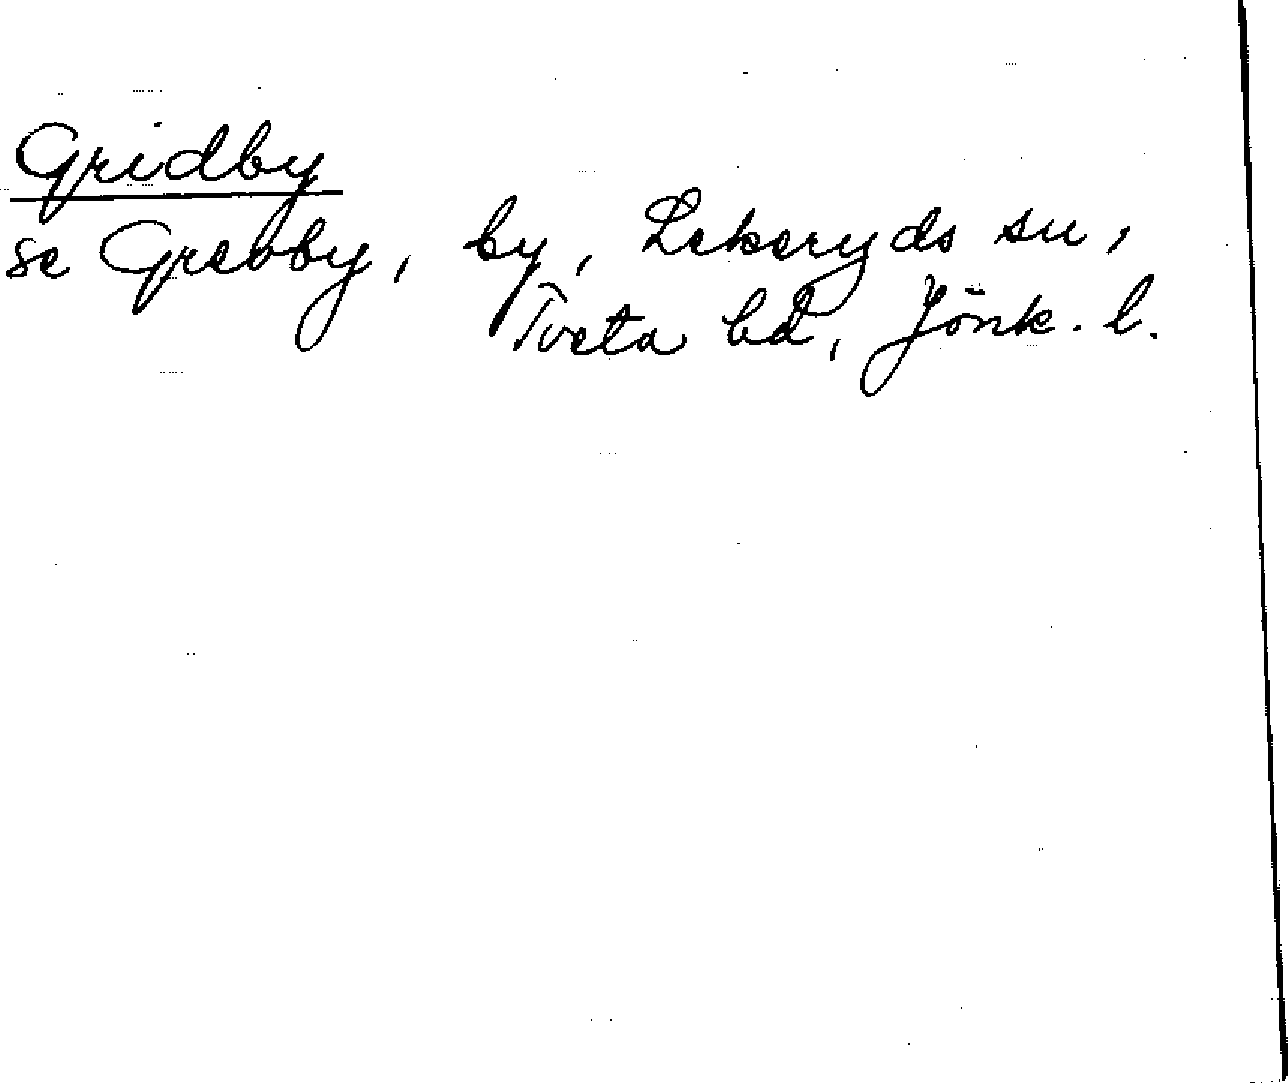 Gridby
se Grebby, by, Lekeryds sn,
Tveta hd, Jönk. l.